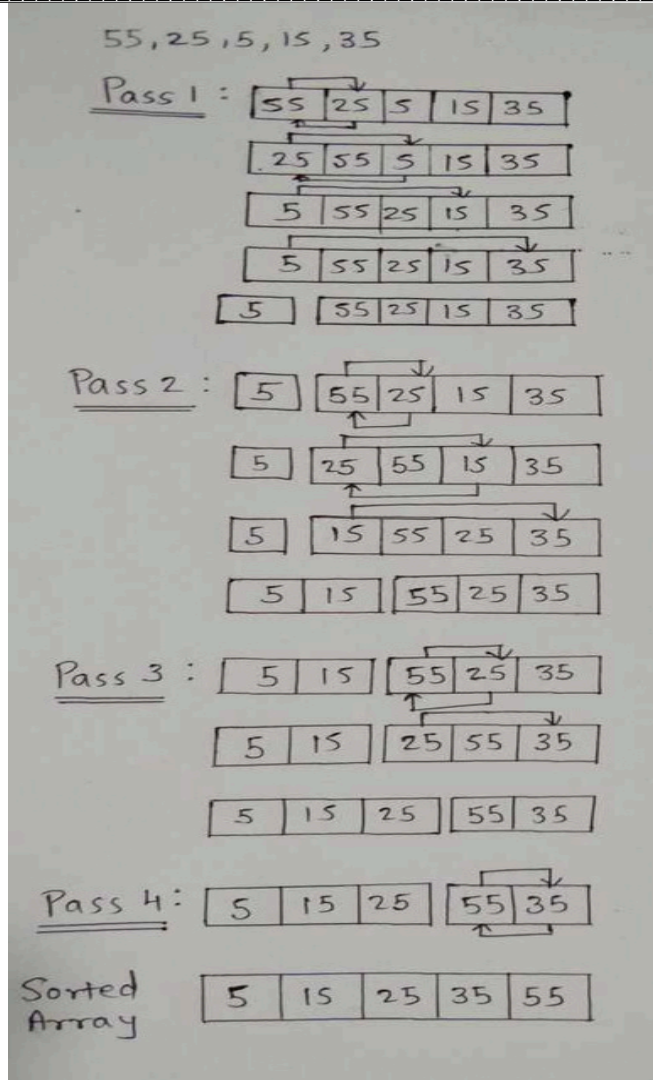 55, 25, 5, 15, 35
Pass 1 : 55 25 5 15 35
25 55 5 15 35
5 55 25 15 35
5 55 25 15 35
5 55 25 15 35
Pass 2 : 5 55 25 15 35
5 25 55 15 35
5 15 55 25 35
5 15 55 25 35
Pass 3 : 5 15 55 25 35
5 15 25 55 35
5 15 25 55 35
Pass 4 : 5 15 25 55 35
Sorted
Array 5 15 25 35 55